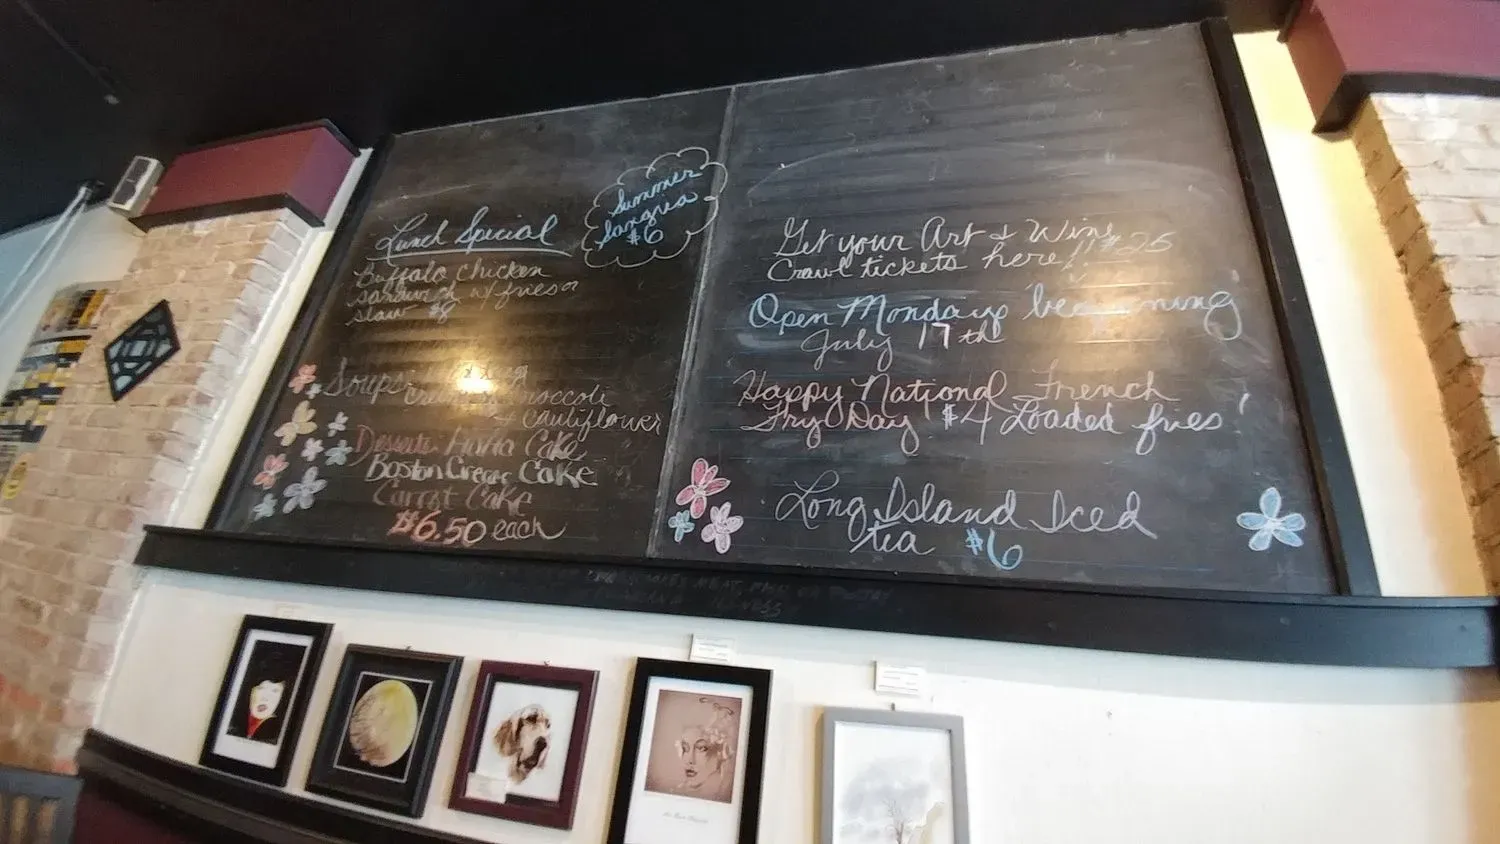 Lunch Special
Summer
Sangria
$6
Buffalo Chicken
sandwich w/ fries or
slaw $8
Soups
Cream of Broccoli
+ Cauliflower
Desserts: Cake
Boston Creme Cake
Carrot Cake
$6.50 each
Get your Art & Wine
Crawl tickets here!! $25
Open Mondays beginning
July 17th
Happy National French
Fry Day! $4 Loaded fries
Long Island Iced
tea $6